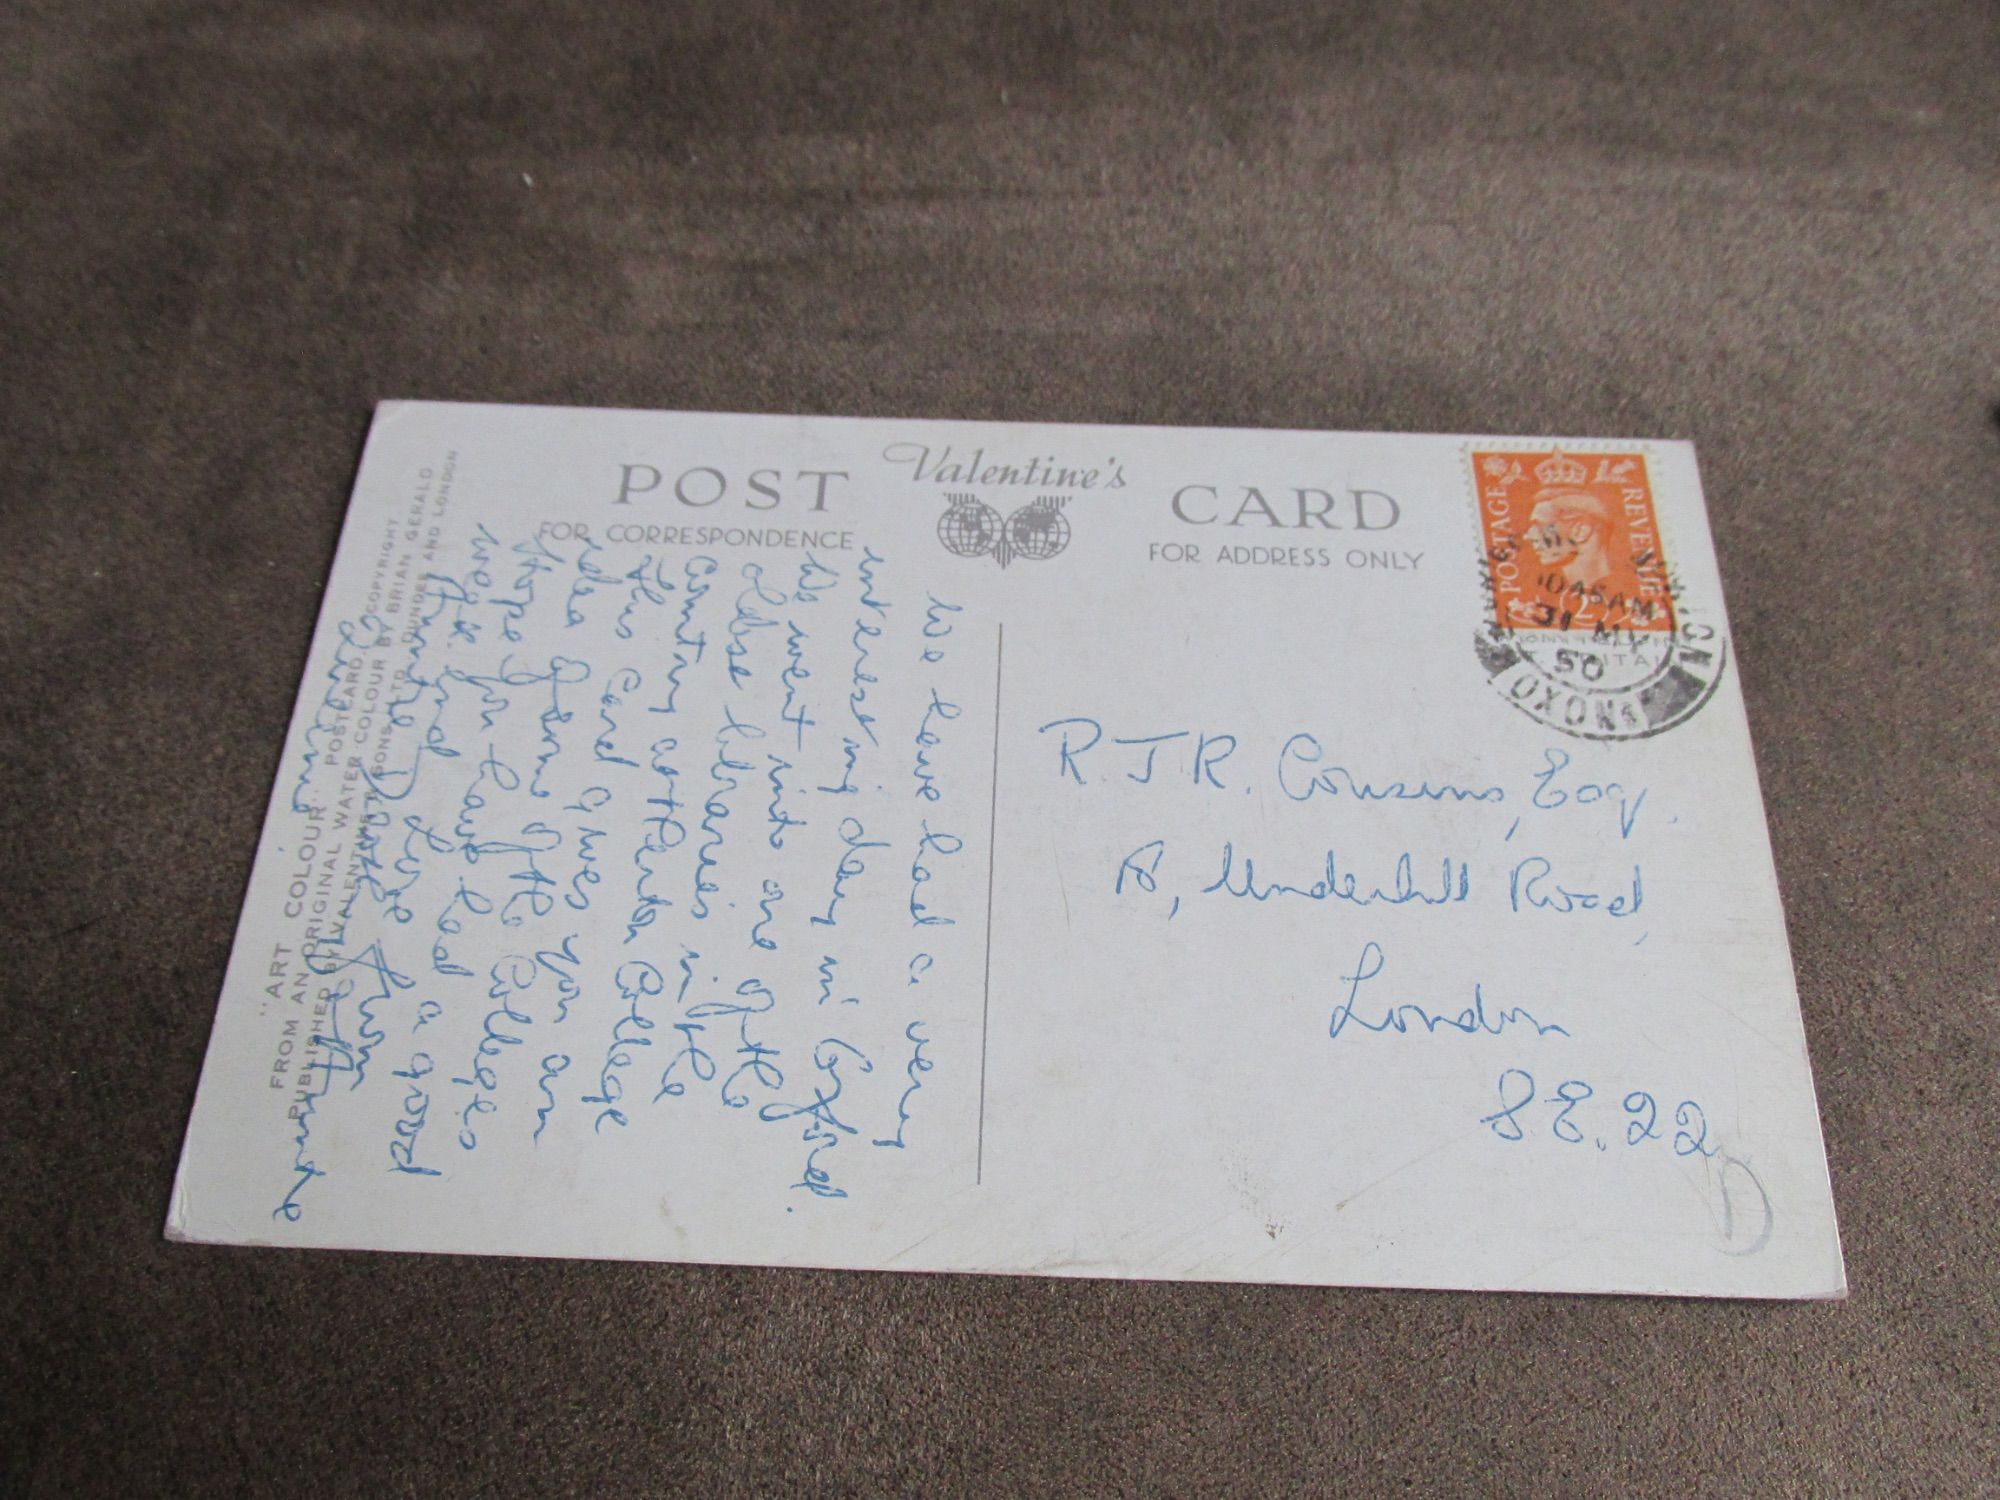 POST Valentine's CARD
FOR CORRESPONDENCE
FOR ADDRESS ONLY
POSTAGE REVENUE
10 45 AM
31 MY
50
OXON
We have had a very
interesting day in Oxford.
We went into one of the
oldest libraries in the
country at Merton College
This Card gives you an
idea of some of the Colleges
Hope you have had a good
week end
love from
Auntie
R. J. R. Cousins, Esq.
Underhill Road,
London
S.E. 22
D
"ART COLOUR" POSTCARD. COPYRIGHT
FROM AN ORIGINAL WATER COLOUR BY BRIAN GERALD
PUBLISHED BY VALENTINE & SONS LTD. DUNDEE AND LONDON